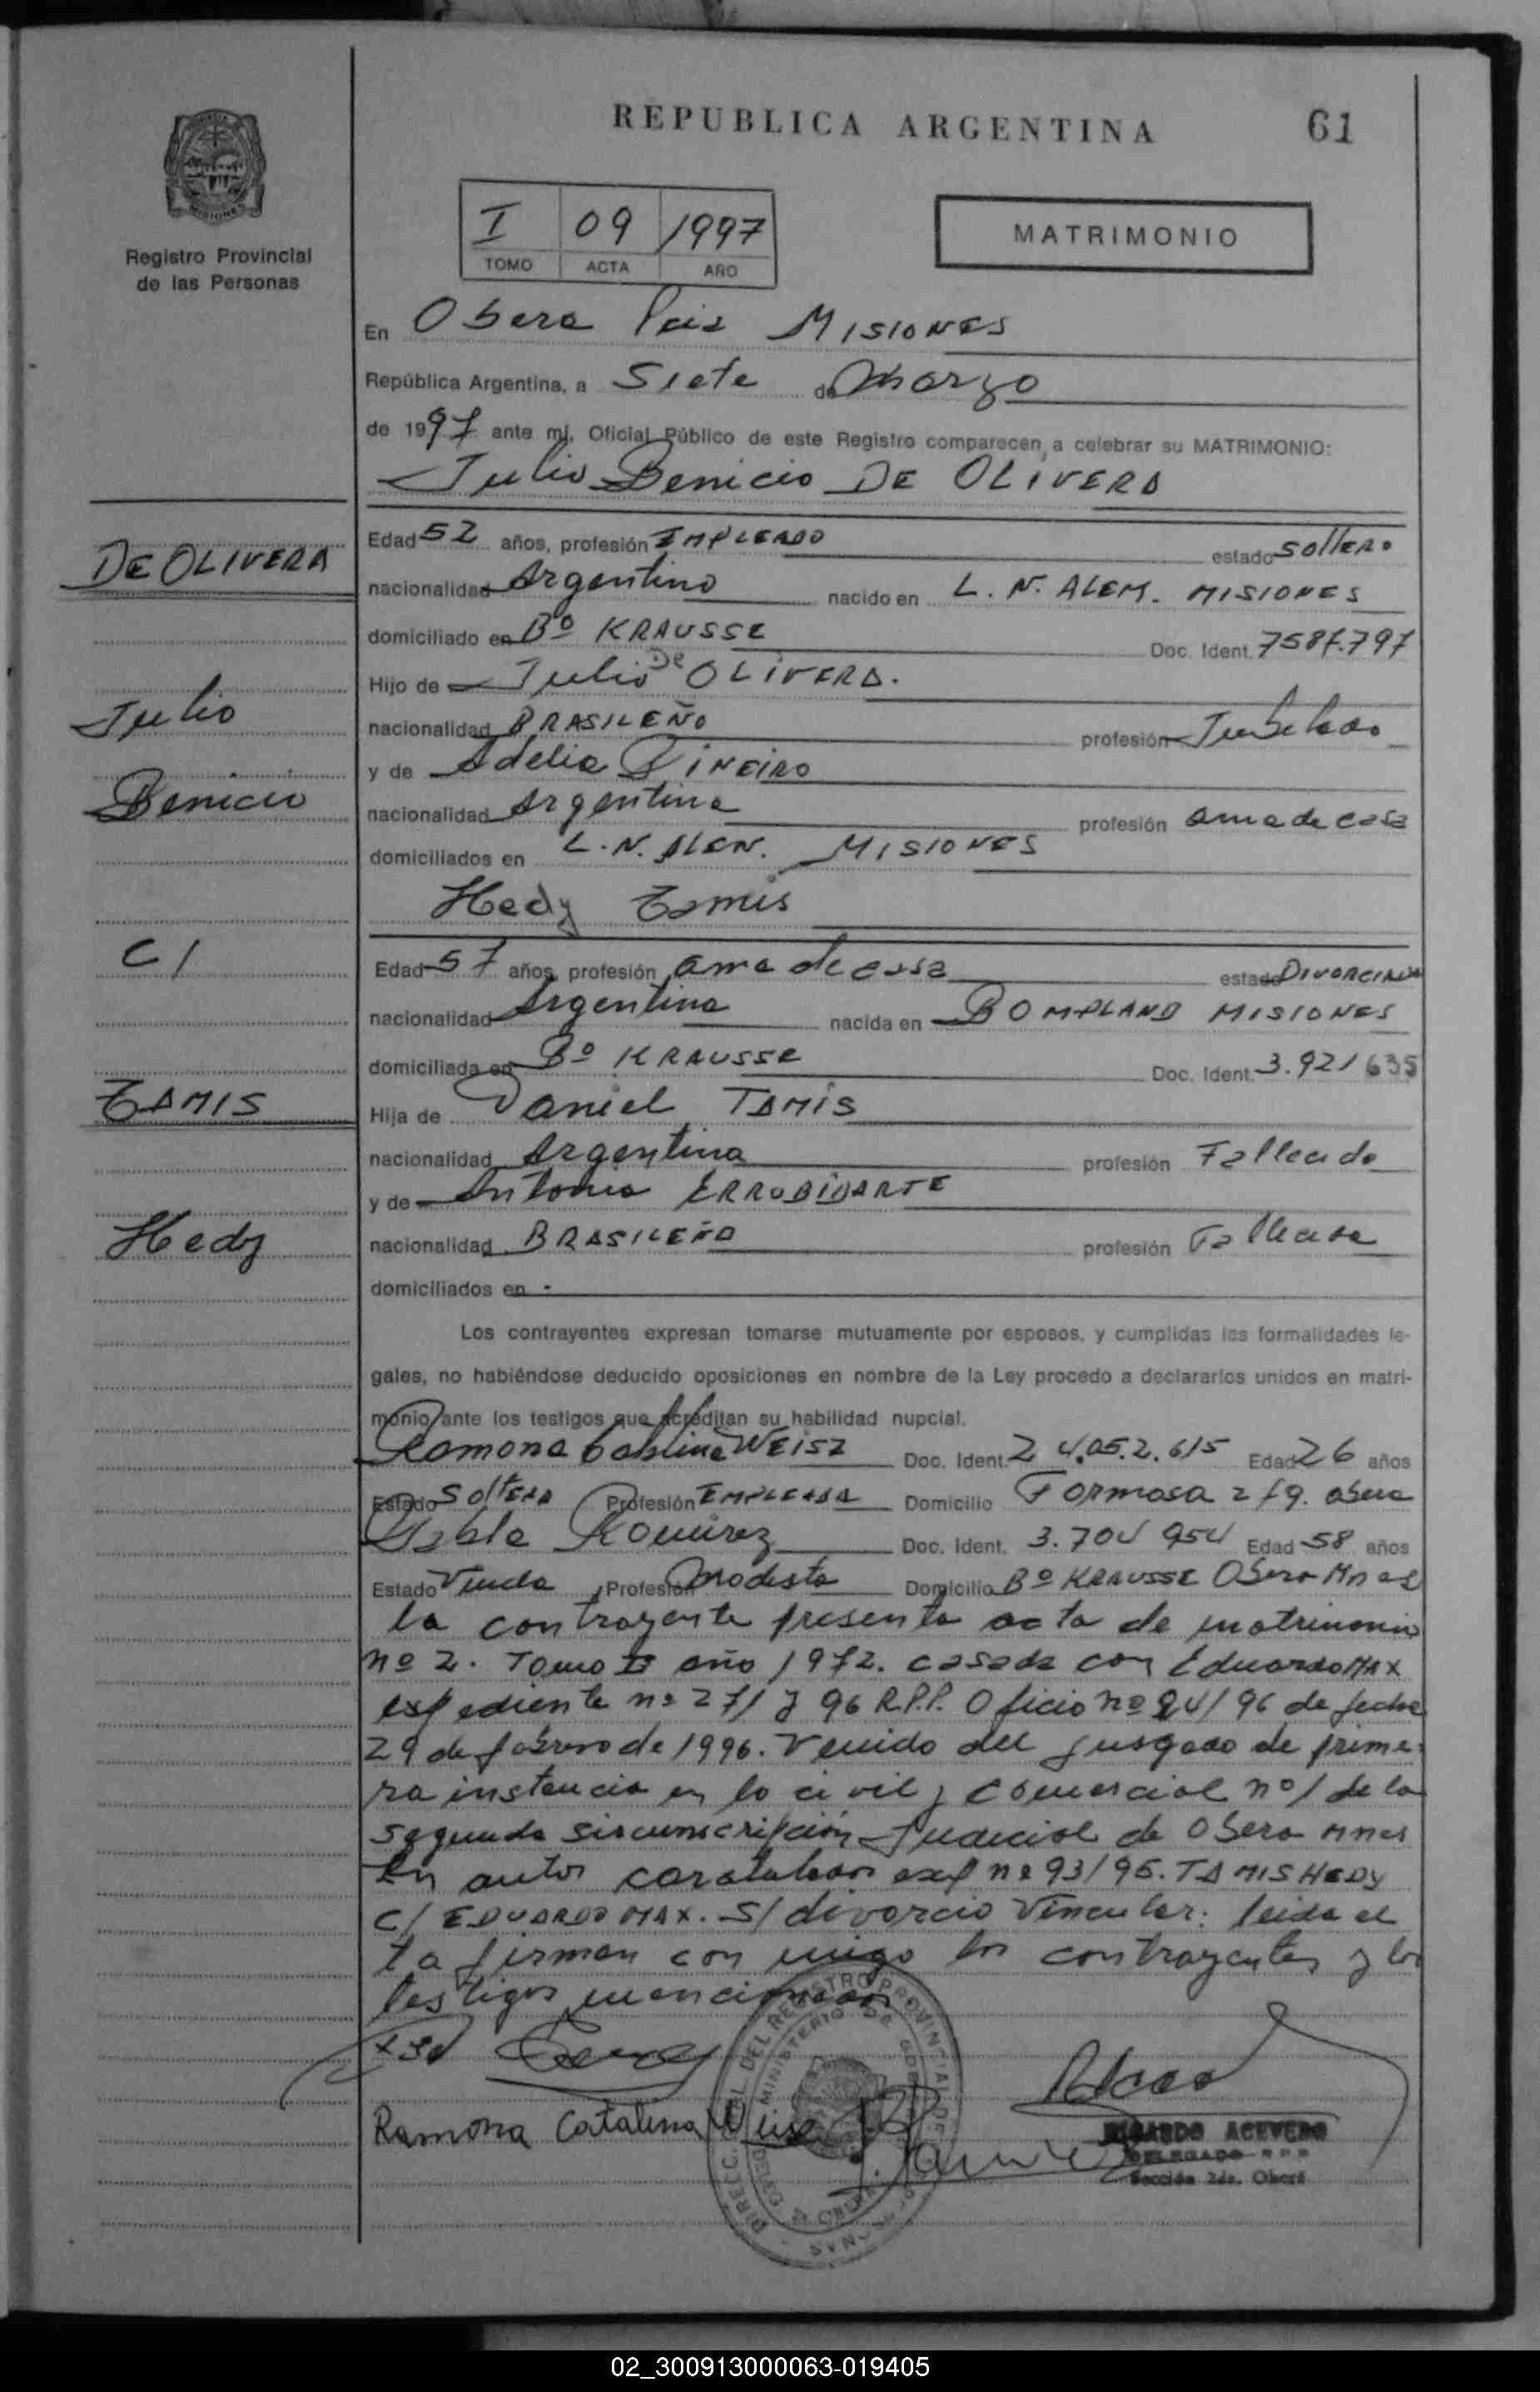 REPUBLICA ARGENTINA
61
Registro Provincial
de las Personas
I 09 1997
TOMO ACTA AÑO
MATRIMONIO
En Obera MISIONES
República Argentina, a Siete de Marzo
de 1997 ante mí, Oficial Público de este Registro comparecen a celebrar su MATRIMONIO:
Julio Benicio DE OLIVERA
DE OLIVERA
Julio
Benicio
C/
TAMIS
Hedy
Edad 52 años, profesión EMPLEADO estado SOLTERO
nacionalidad Argentino nacido en L. N. ALEM. MISIONES
domiciliado en Bº KRAUSSE Doc. Ident. 7587.797
Hijo de Julio De OLIVERA.
nacionalidad BRASILEÑO profesión Jubilado
y de Adelia PINEIRO
nacionalidad Argentina profesión ama de casa
domiciliados en L.N. ALEM. MISIONES
Hedy Tamis
Edad 57 años, profesión ama de casa estado DIVORCIADA
nacionalidad Argentina nacida en BOMPLAND MISIONES
domiciliada en Bº KRAUSSE Doc. Ident. 3.921635
Hija de Daniel TAMIS
nacionalidad Argentina profesión Fallecido
y de Antonia ERROBIDARTE
nacionalidad BRASILEÑA profesión Fallecida
domiciliados en -
Los contrayentes expresan tomarse mutuamente por esposos, y cumplidas las formalidades le-
gales, no habiéndose deducido oposiciones en nombre de la Ley procedo a declararlos unidos en matri-
monio ante los testigos que acreditan su habilidad nupcial.
Ramona Catalina WEISZ Doc. Ident. 24.052.615 Edad 26 años
Estado SOLTERA Profesión EMPLEADA Domicilio Formosa 279. Obera
Ramirez Doc. Ident. 3.704 954 Edad 58 años
Estado Viuda Profesión Modista Domicilio Bº KRAUSSE Obera Mnes
la contrayente presenta acta de matrimonio
nº 2. Tomo II año 1972. casada con Eduardo MAX
expediente nº 271 J 96 R.P.P. Oficio nº 94/96 de fecha
29 de febrero de 1996. Venido del jusgado de prime-
ra instancia en lo civil y comercial nº1 de la
segunda sircunscripción Judicial de Obera Mnes
En autos caratulados exp nº 93/95. TAMIS HEDY
C/ EDUARDO MAX. S/ divorcio Vincular. leida el
ta firman con migo los contrayentes y los
testigos mencionados
Ramona Catalina Weisz
RICARDO ACEVEDO
DELEGADO R P P
Sección 2da. Oberá
DIRECC. GRAL. DEL REGISTRO PROVINCIAL DE PERSONAS
MINISTERIO DE
02_300913000063-019405